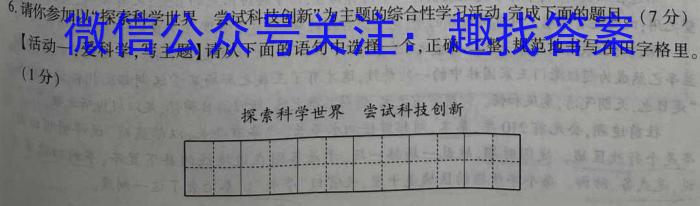 6.请你参加以“探索科学世界 尝试科技创新”为主题的综合性学习活动,完成下面的题目。(7分)
微信公众号关注:趣找答案
【活动一:爱科学,写主题】请从下面的语句中选择一个,正确、工整、规范地书写在田字格里。
(1分)
探索科学世界 尝试科技创新